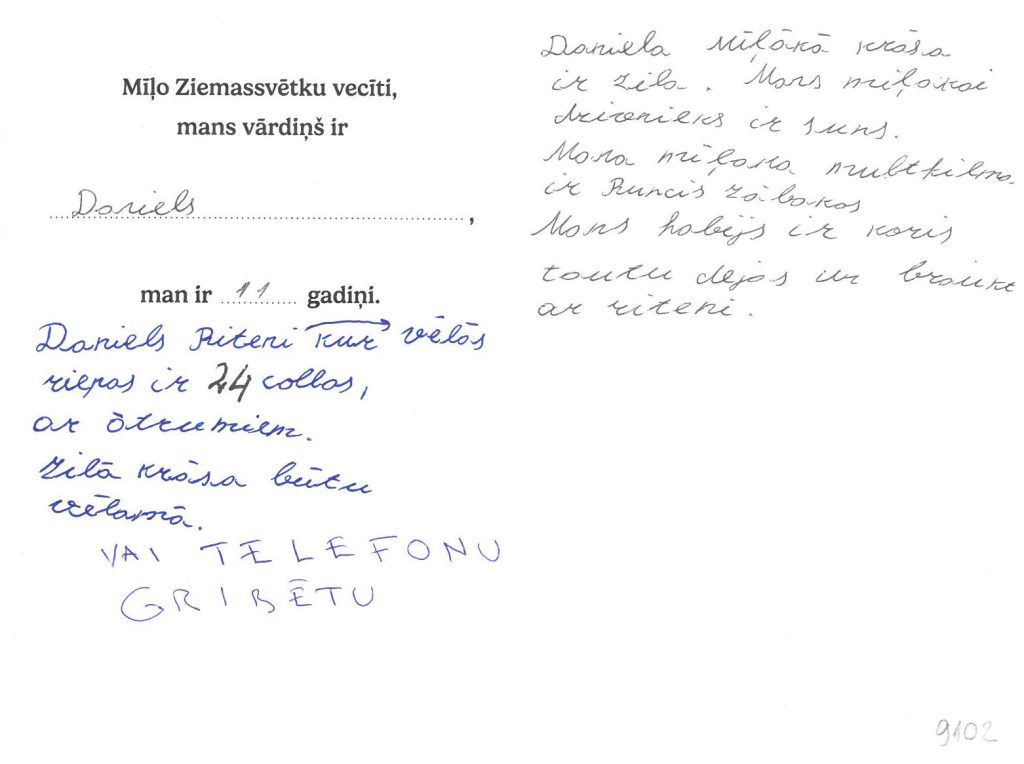 Mīļo Ziemassvētku vecīti,
mans vārdiņš ir
Daniels,
man ir 11 gadiņi.
Daniels Riteni kur vēlās
riepas ir 24 collas,
ar ātrumiem.
Zilā krāsa būtu
vēlamā.
VAI TELEFONU
GRIBĒTU
Daniela Mīļākā krāsa
ir zila. Mans miļakai
dzivnieks ir suns.
Mana mīļaka multfilma
ir Runcis zābakos
Mans hobijs ir koris
tautu dejas un braukt
ar riteni.
9102